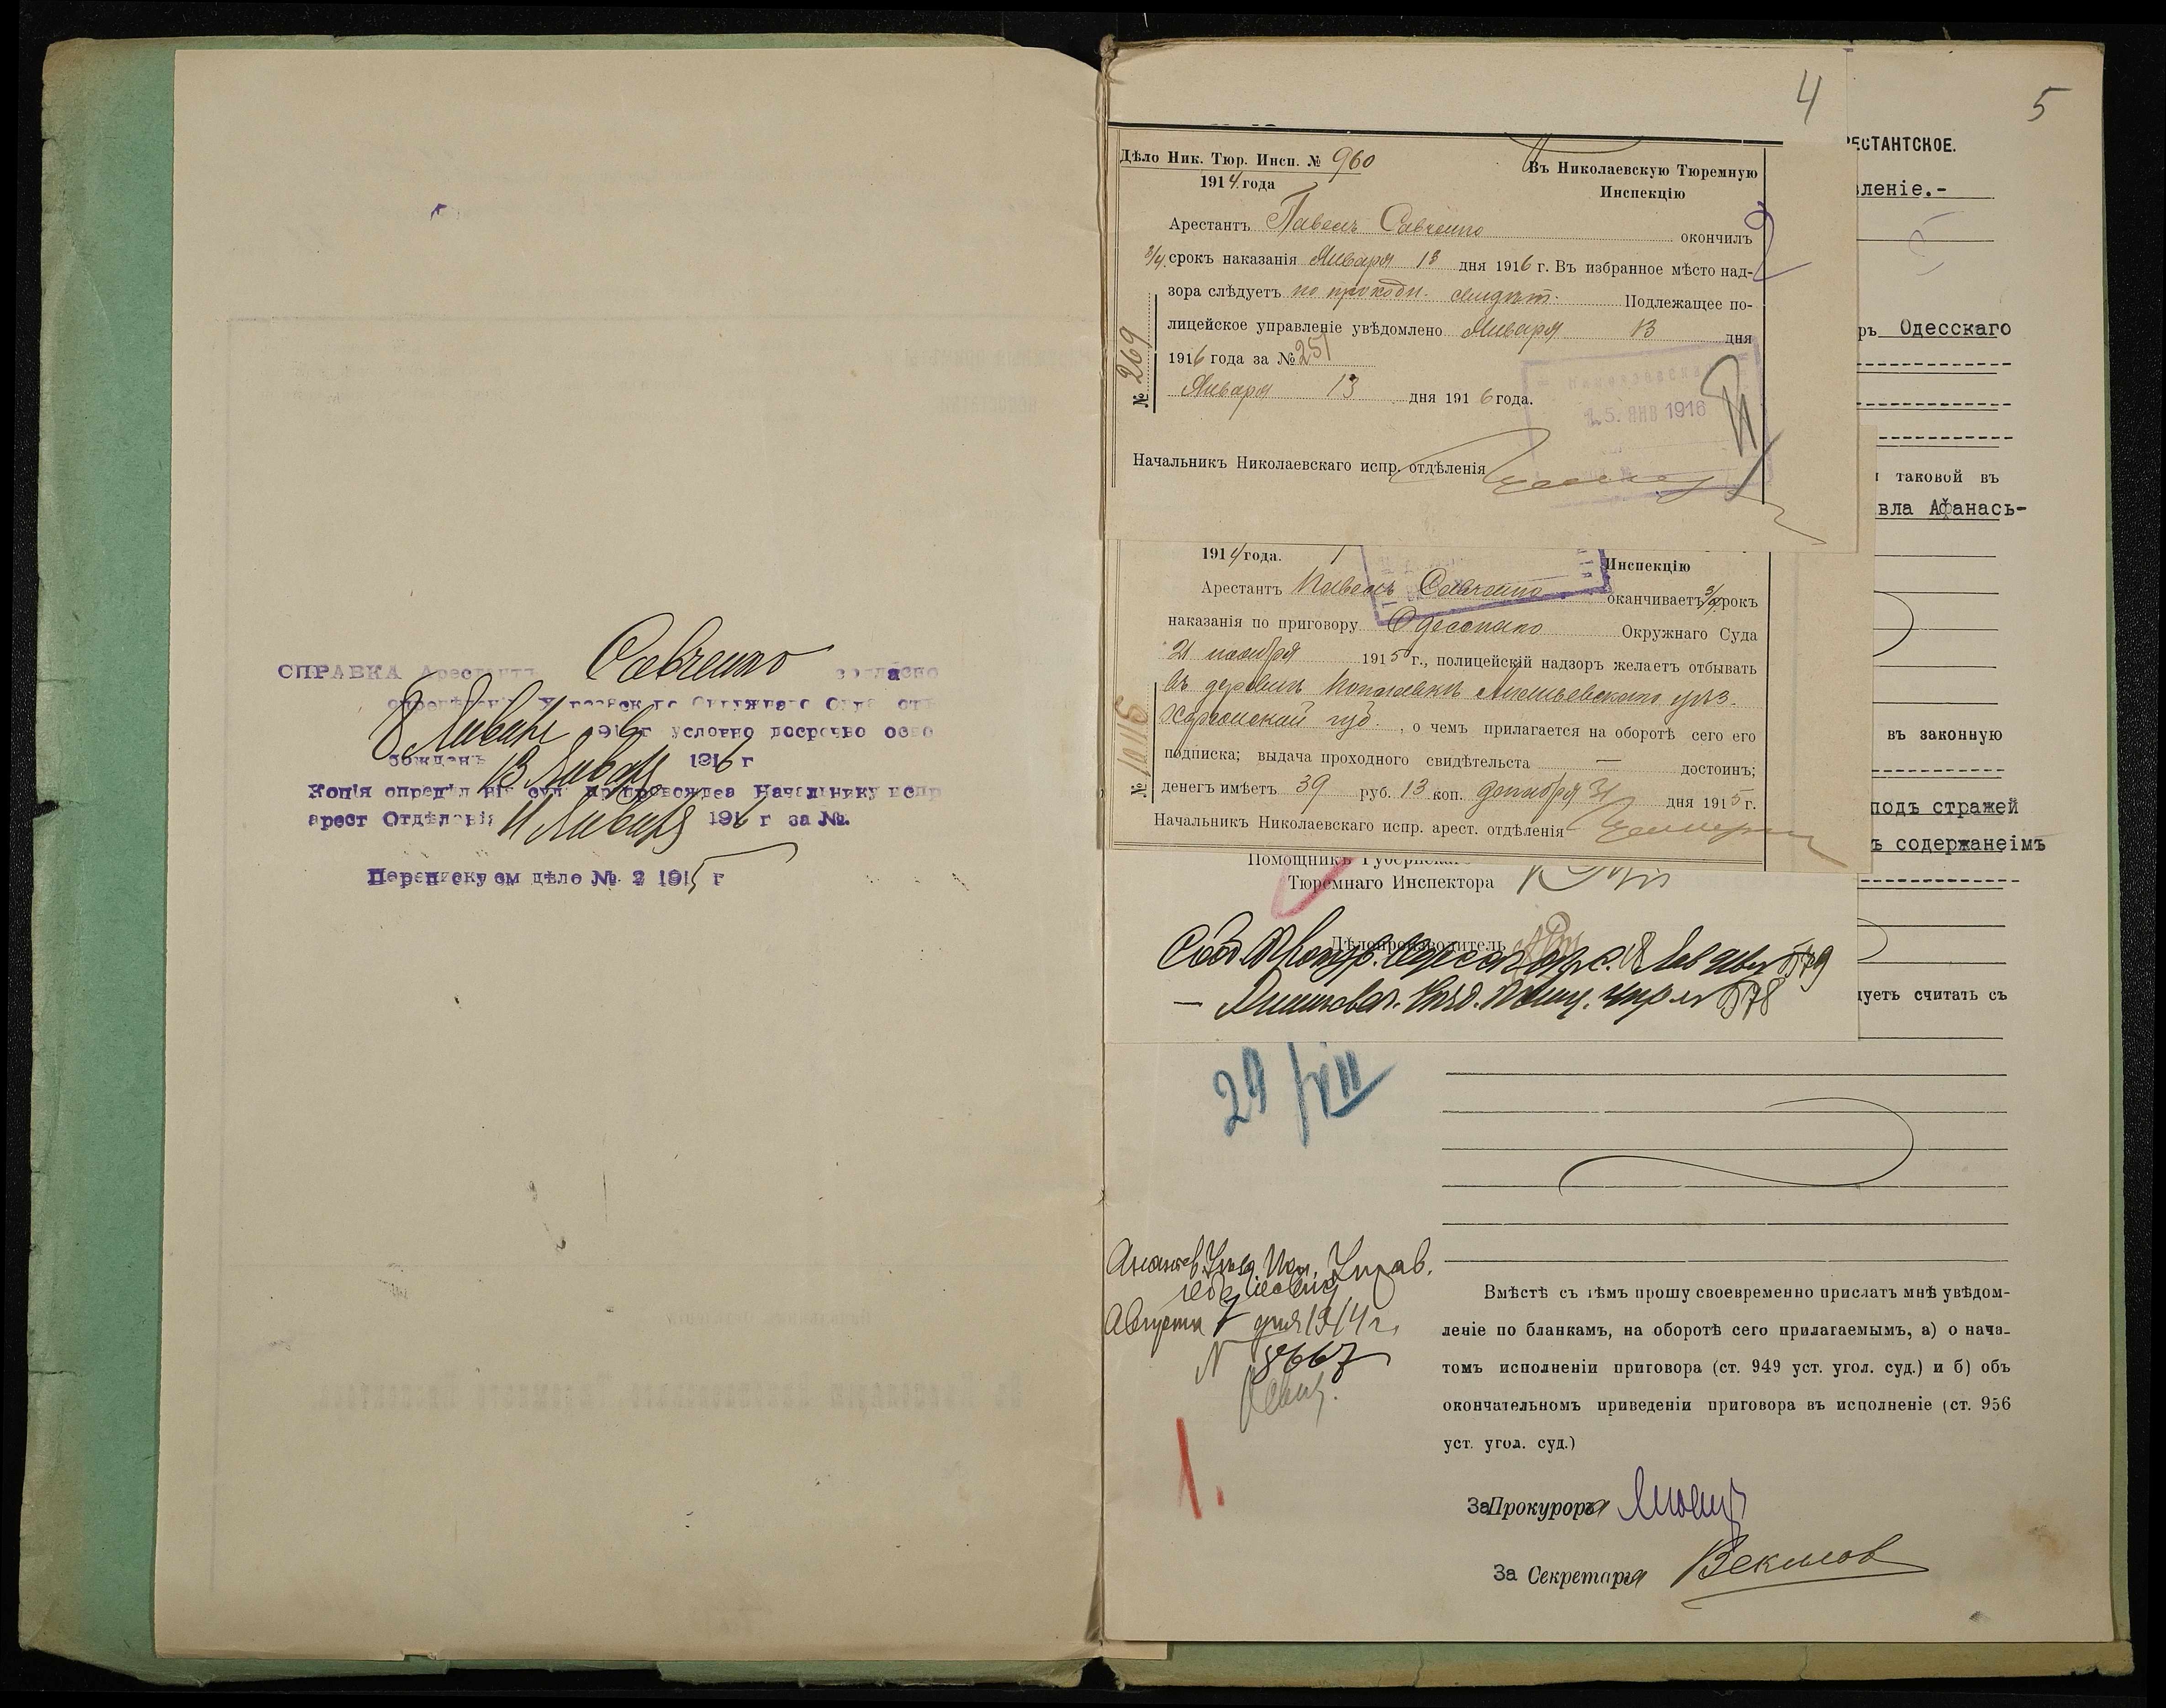 СПРАВКА Арестантъ Савченко согласно
опредѣленію Окружнаго Суда отъ
8 Января 1916 г условно досрочно осво
божденъ 13 Января 1916 г
Копія опредѣленія суда препровождена Начальнику испр
арест Отдѣленія 11 Января 1916 г за №.
Переписку см дѣло № 2 1915 г
4
5
Дѣло Ник. Тюр. Инсп. № 960
1914 года
Въ Николаевскую Тюремную
Инспекцію
Арестантъ Павелъ Савченко окончилъ
3/4 срокъ наказанія Января 13 дня 1916 г. Въ избранное мѣсто над-
зора слѣдуетъ по проходн. свидѣт. Подлежащее по-
лицейское управленіе увѣдомлено Января 13 дня
1916 года за № 251
Января 13 дня 1916 года.
№ 269
15. ЯНВ 1916
Начальникъ Николаевскаго испр. отдѣленія
1914 года.
Инспекцію
Арестантъ Павелъ Савченко оканчиваетъ 3/4 срокъ
наказанія по приговору Одесскаго Окружнаго Суда
21 ноября 1915 г., полицейскій надзоръ желаетъ отбывать
въ деревнѣ Ананьевскаго уѣз.
Херсонской губ., о чемъ прилагается на оборотѣ сего его
подписка; выдача проходного свидѣтельста — достоинъ;
денегъ имѣетъ 39 руб. 13 коп. декабря 31 дня 1915 г.
№ 10116
Начальникъ Николаевскаго испр. арест. отдѣленія
Помощникъ Губернскаго
Тюремнаго Инспектора
Дѣлопроизводитель
29/VIII
РЕСТАНТСКОЕ.
вленіе.-
ръ Одесскаго
таковой въ
вла Афанась-
въ законную
подъ стражей
ъ содержанеімъ
дуетъ считать съ
Ананьев. Уѣзд. Пол. Управ.
Августа 7 дня 1914 г.
N 8667
1.
Вмѣстѣ съ тѣмъ прошу своевременно прислать мнѣ увѣдом-
леніе по бланкамъ, на оборотѣ сего прилагаемымъ, а) о нача-
томъ исполненіи приговора (ст. 949 уст. угол. суд.) и б) объ
окончательномъ приведеніи приговора въ исполненіе (ст. 956
уст. угол. суд.)
За Прокурора
За Секретаря Векилов